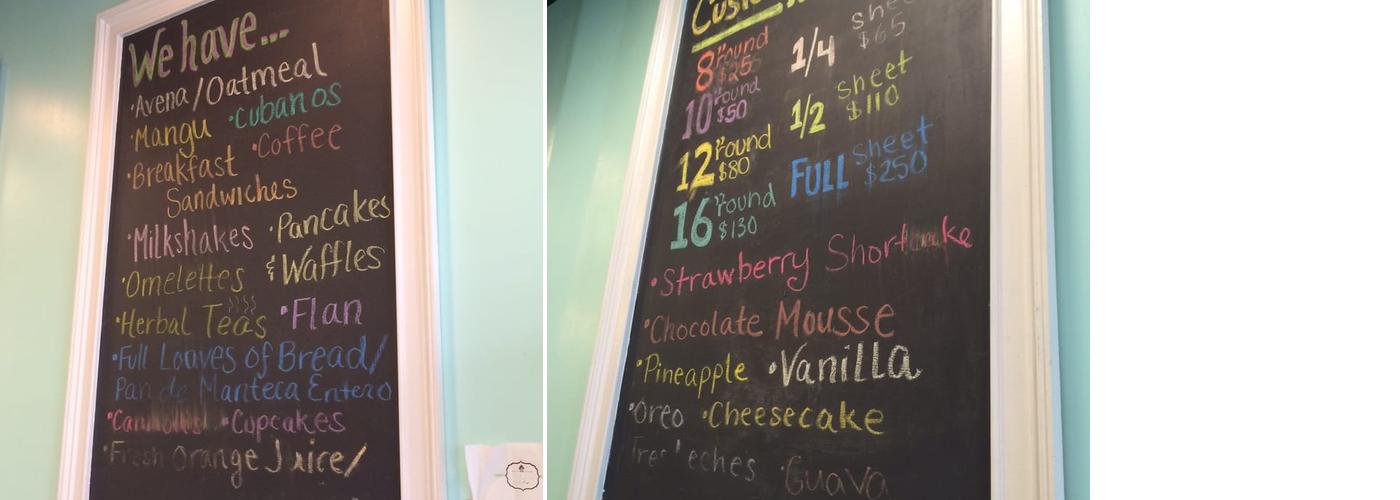 We have...
·Avena/Oatmeal
·Mangu ·Cubanos
·Breakfast ·Coffee
Sandwiches
·Milkshakes ·Pancakes
·Omelettes & Waffles
·Herbal Teas ·Flan
·Full Loaves of Bread/
Pan de Manteca Entero
·Cannolis! ·Cupcakes
·Fresh Orange Juice/
8" round $25
1/4 sheet $65
10" round $50
1/2 sheet $110
12" round $80
FULL sheet $250
16" round $130
·Strawberry Shortcake
·Chocolate Mousse
·Pineapple ·Vanilla
·Oreo ·Cheesecake
Tres Leches ·Guava